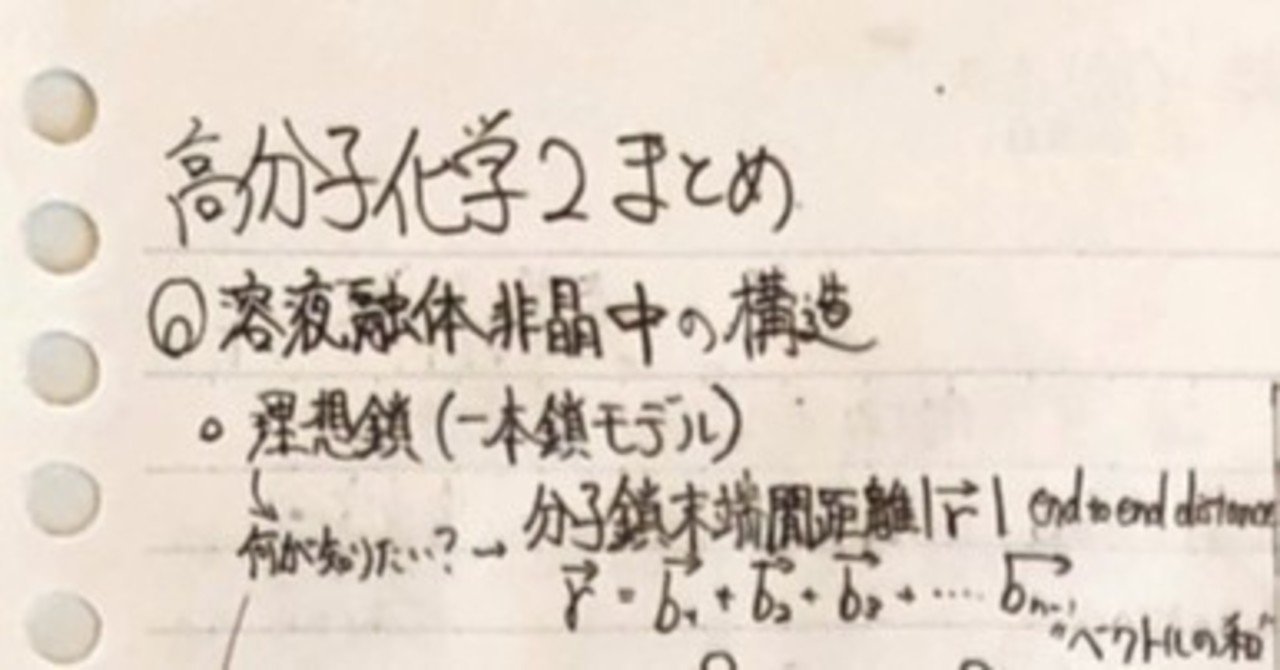 高分子化学2 まとめ
⑥ 溶液融体非晶中の構造
○ 理想鎖 (一本鎖モデル)
何が知りたい? → 分子鎖末端間距離|r⃗| end to end distance
r⃗ = b⃗₁ + b⃗₂ + b⃗₃ + ···· b⃗ₙ₋₁
"ベクトルの和"